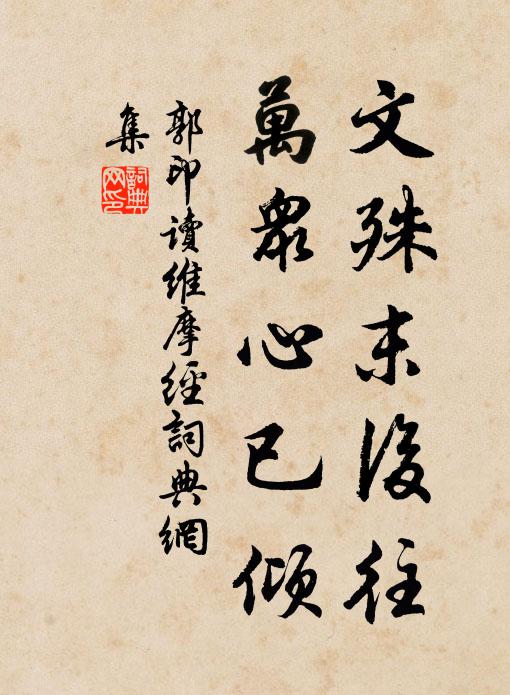 文殊末後往
萬眾心已傾
郭印讀維摩經詞典網
集
詞典
网印